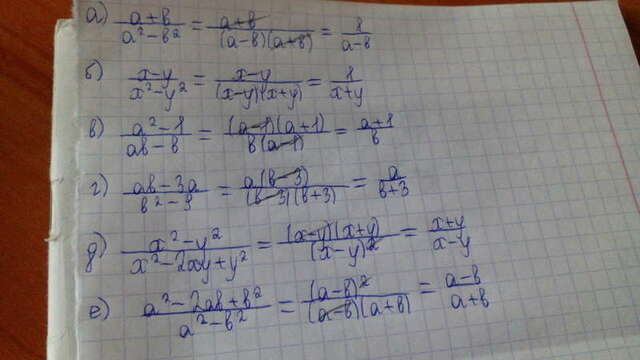 а) a+b/a²-b² = a+b/(a-b)(a+b) = 1/a-b
б) x-y/x²-y² = x-y/(x-y)(x+y) = 1/x+y
в) a²-1/ab-b = (a-1)(a+1)/b(a-1) = a+1/b
г) ab-3a/b²-9 = a(b-3)/(b-3)(b+3) = a/b+3
д) x²-y²/x²-2xy+y² = (x-y)(x+y)/(x-y)² = x+y/x-y
е) a²-2ab+b²/a²-b² = (a-b)²/(a-b)(a+b) = a-b/a+b